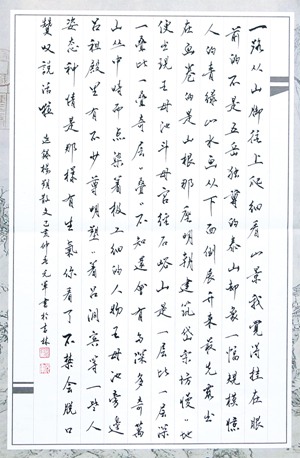 一路从山脚往上爬细看山景我覺得挂在眼
前的不是五岳独尊的泰山却象一幅規模惊
人的青绿山水画从下面倒展开来最先露出
在画卷的是山根那座明朝建筑岱宗坊慢々地
便出现王母池斗母宫经石峪山是一层比一层深
一叠比一叠奇层々叠々不知還会有多深多奇萬
山丛中時而点染着极工细的人物王母池旁邊
吕祖殿里有不少尊明塑々着吕洞宾等一些人
姿态神情是那樣有生氣你看了不禁会脱口
贊叹說活啦 选錄楊朔散文己亥仲冬元軍書於吉林